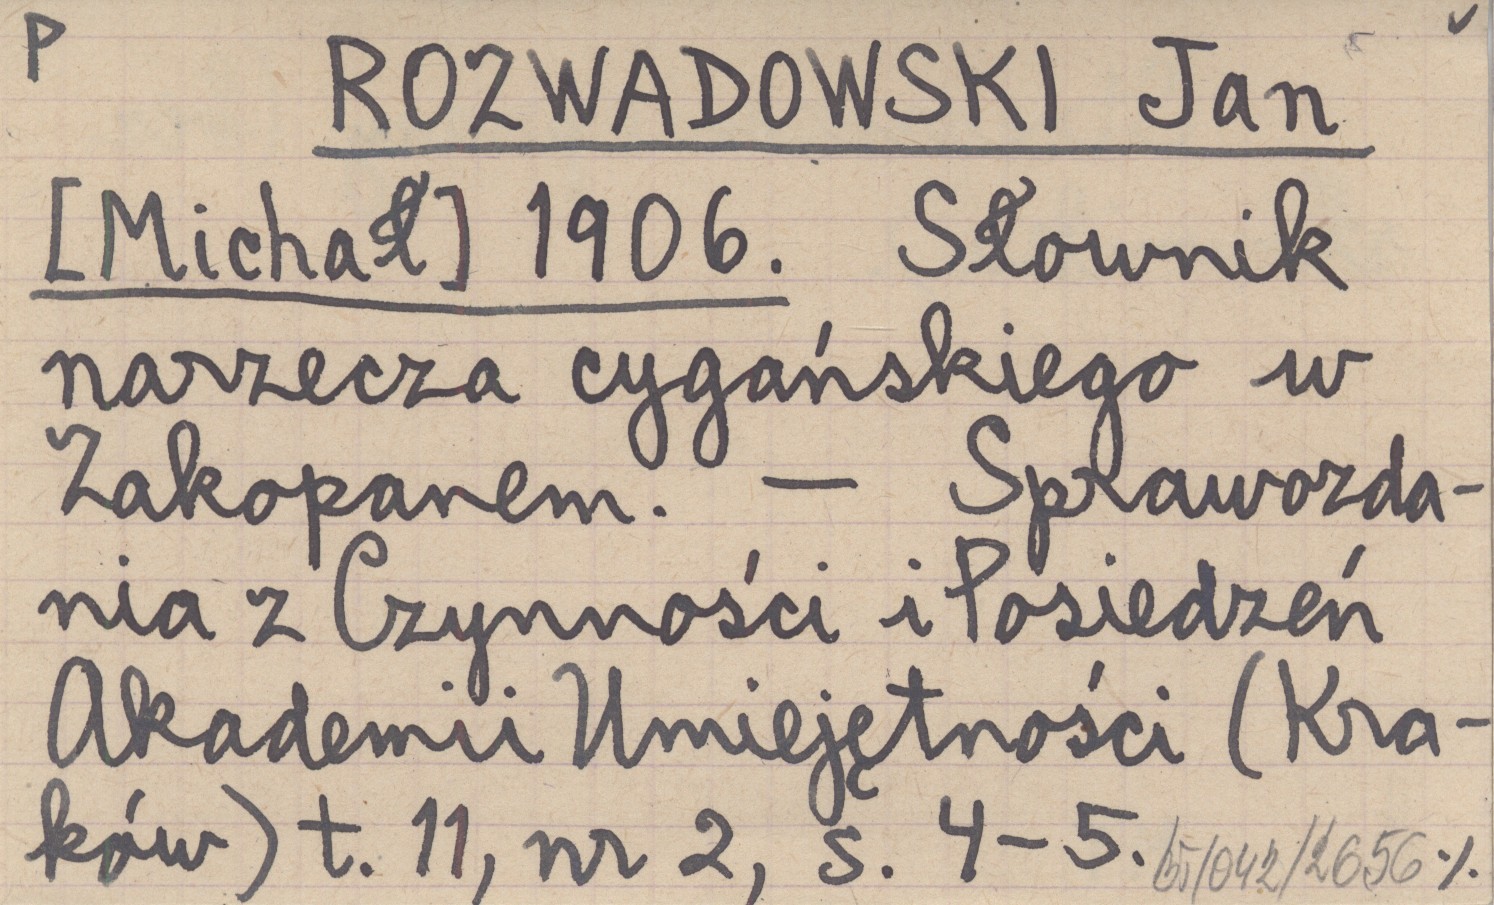 P
ROZWADOWSKI Jan
[Michał] 1906. Słownik
narzecza cygańskiego w
Zakopanem. — Sprawozda-
nia z Czynności i Posiedzeń
Akademii Umiejętności (Kra-
ków) t. 11, nr 2, s. 4-5.
/042/2656 ·/.